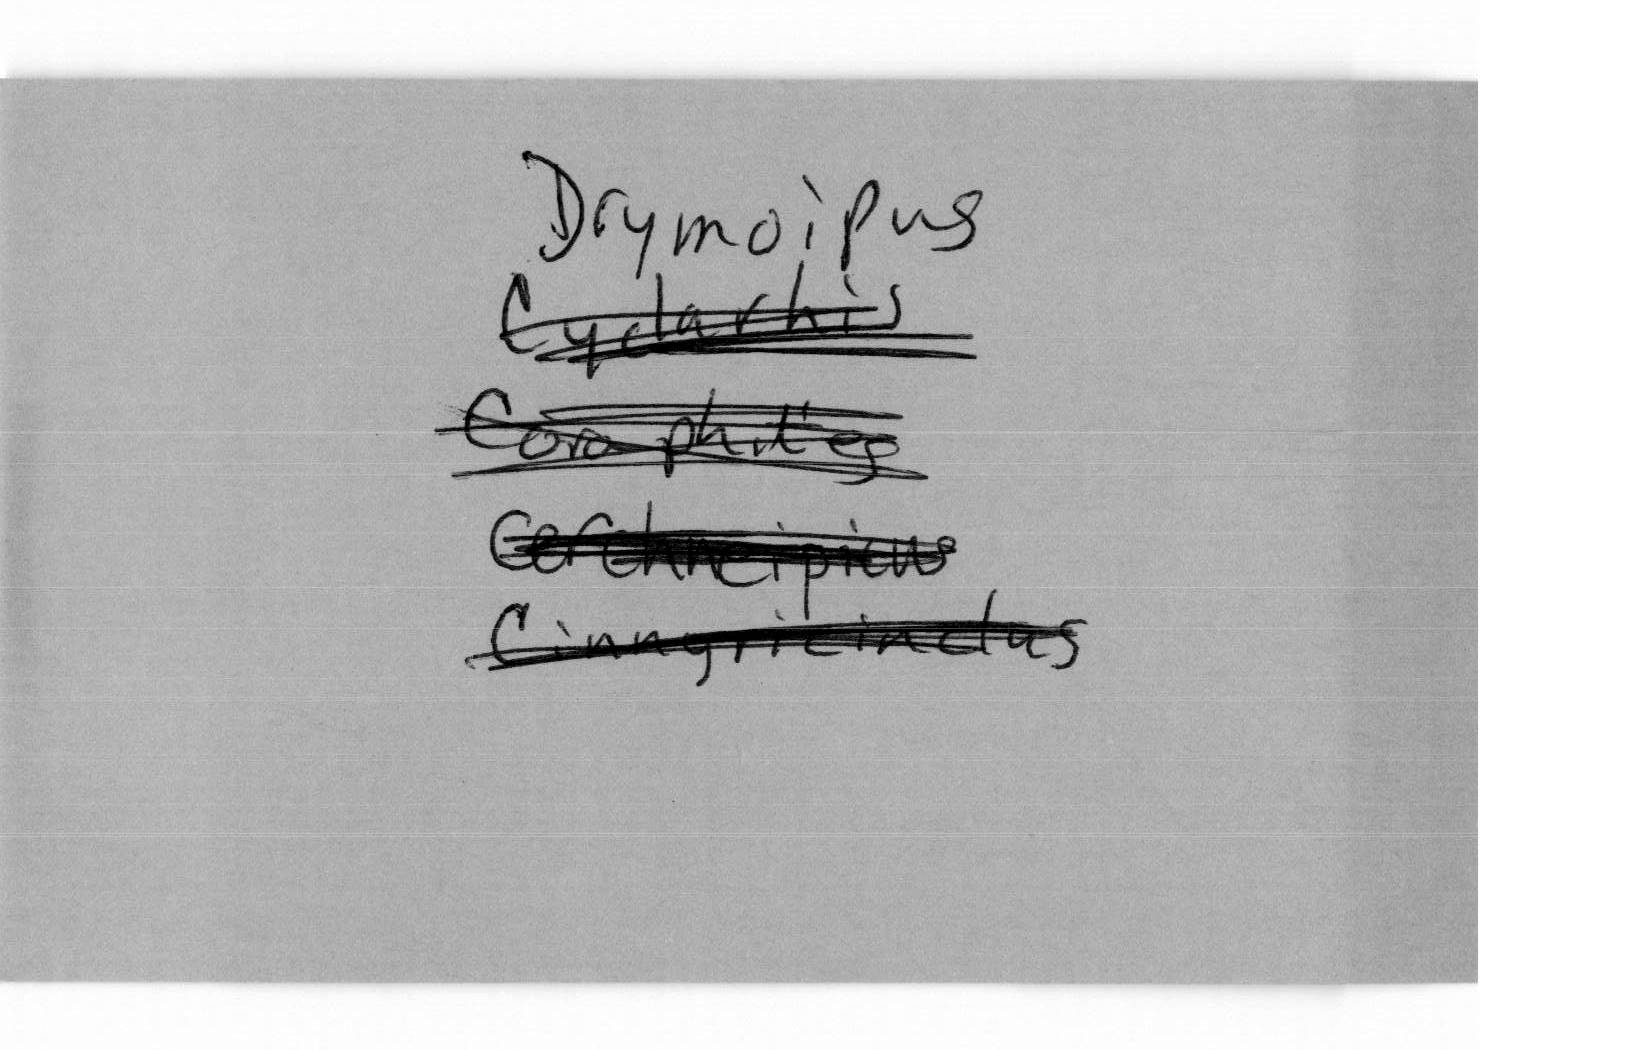 Drymoipus
Cyclarhis
Coraphites
Cerchneipicus
Cinnyricinclus